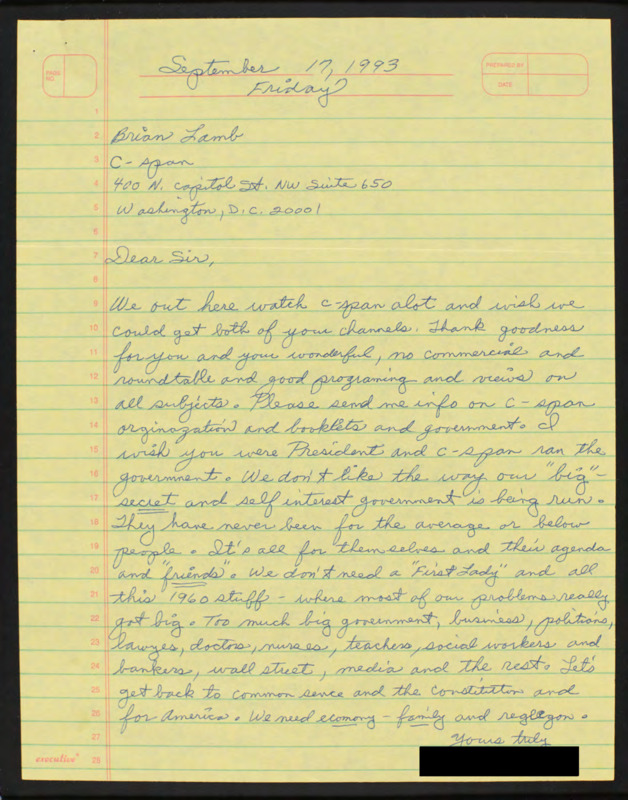 September 17, 1993
Friday
PAGE NO.
PREPARED BY
DATE
1
2 Brian Lamb
3 C-span
4 400 N. Capitol St. NW Suite 650
5 Washington, D.C. 20001
6
7 Dear Sir,
8
9 We out here watch c-span alot and wish we
10 could get both of your channels. Thank goodness
11 for you and your wonderful, no commercial and
12 roundtable and good programing and views on
13 all subjects. Please send me info on C-span
14 orginazation and booklets and government. I
15 wish you were President and c-span ran the
16 government. We don't like the way our "big"-
17 secret and self interest government is being run.
18 They have never been for the average or below
19 people. It's all for themselves and their agenda
20 and "friends". We don't need a "First Lady" and all
21 this 1960 stuff - where most of our problems really
22 got big. Too much big government, business, politions,
23 lawyes, doctors, nurses, teachers, social workers and
24 bankers, wall street, media and the rest. Let's
25 get back to common sence and the constitution and
26 for America. We need economy - family and
27 Yours truly
executive 28